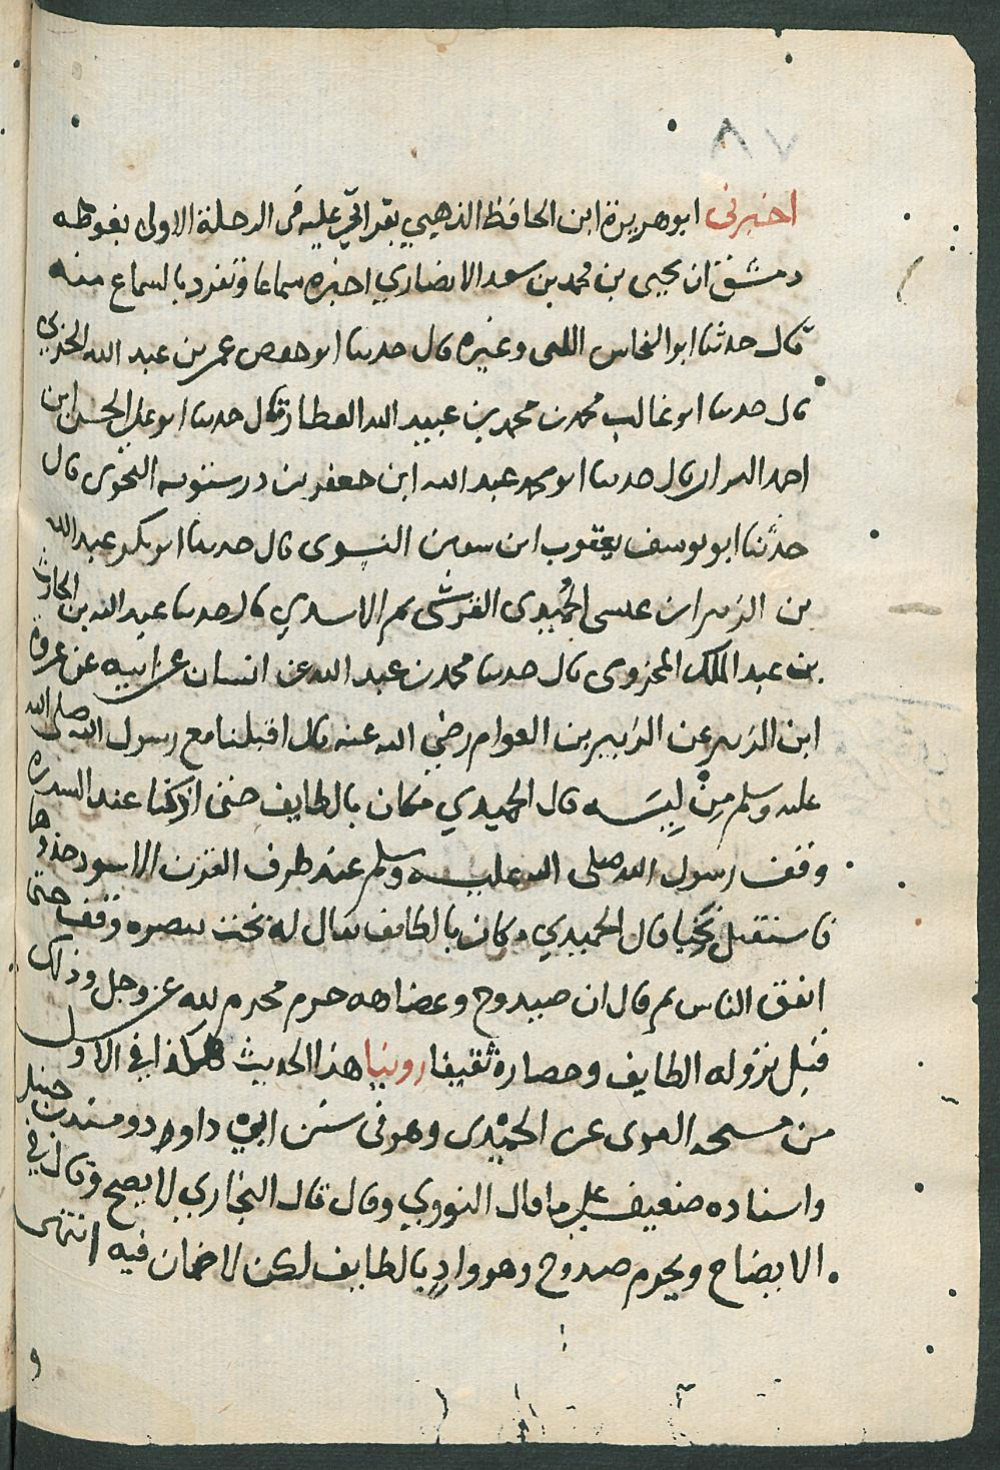 ٧٨
اخبرني ابو هريرة ابن الحافظ الذهبي بقراتي عليه في الرحلة الاولى بغوطه
دمشق ان يحيى بن محمد بن سعد الانصاري اخبره سماعا وتفرد بالسماع منه
قال حدثنا ابو النجاس اللتى وغيره قال حدثنا ابو حفص عمر بن عبد الله الحربي
قال حدثنا ابو غالب محمد بن محمد بن عبيد الله العطار قال حدثنا ابو علي الحسن ابن
احمد البزار قال حدثنا ابو محمد عبد الله ابن جعفر بن درستويه النحوى قال
حدثنا ابو يوسف يعقوب ابن سفين النسوى قال حدثنا ابو بكر عبد الله
بن الزبير ابن عيسى الحُمَيدى القرشى ثم الاسدي قال حدثنا عبد الله بن الحارث
بن عبد الملك المخزومى قال حدثنا محمد بن عبد الله بن انسان عن ابيه عن عروة
ابن الزبير عن الزبير بن العوام رضي الله عنه قال اقبلنا مع رسول الله صلى الله
عليه وسلم مِنْ لِيَّسَه قال الحميدي مكان بالطايف حتى اذ كنا عند السدره
وقف رسول الله صلى الله عليه وسلم عند طرف القرن الاسود حذوها
فاستقبل نخبا قال الحميدي مكان بالطايف يقال له نخب ببصره وقف حتى
اتفق الناس ثم قال ان صيدوج وعضاهه حرم محرم لله عز وجل وذلك
قبل نزوله الطايف وحصاره ثقيفا روينا هذا الحديث هكذا في الاول
من مسحه الفوى عن الحميدى وهو في سنن ابي داود ومسند بن حنبل
واسناده ضعيف على ما قال النووي وقال قال البخاري لا يصح وقال في
الايضاح ويحرم صيدوج وهو وادٍ بالطايف لكن لا ضمان فيه انتهى
و